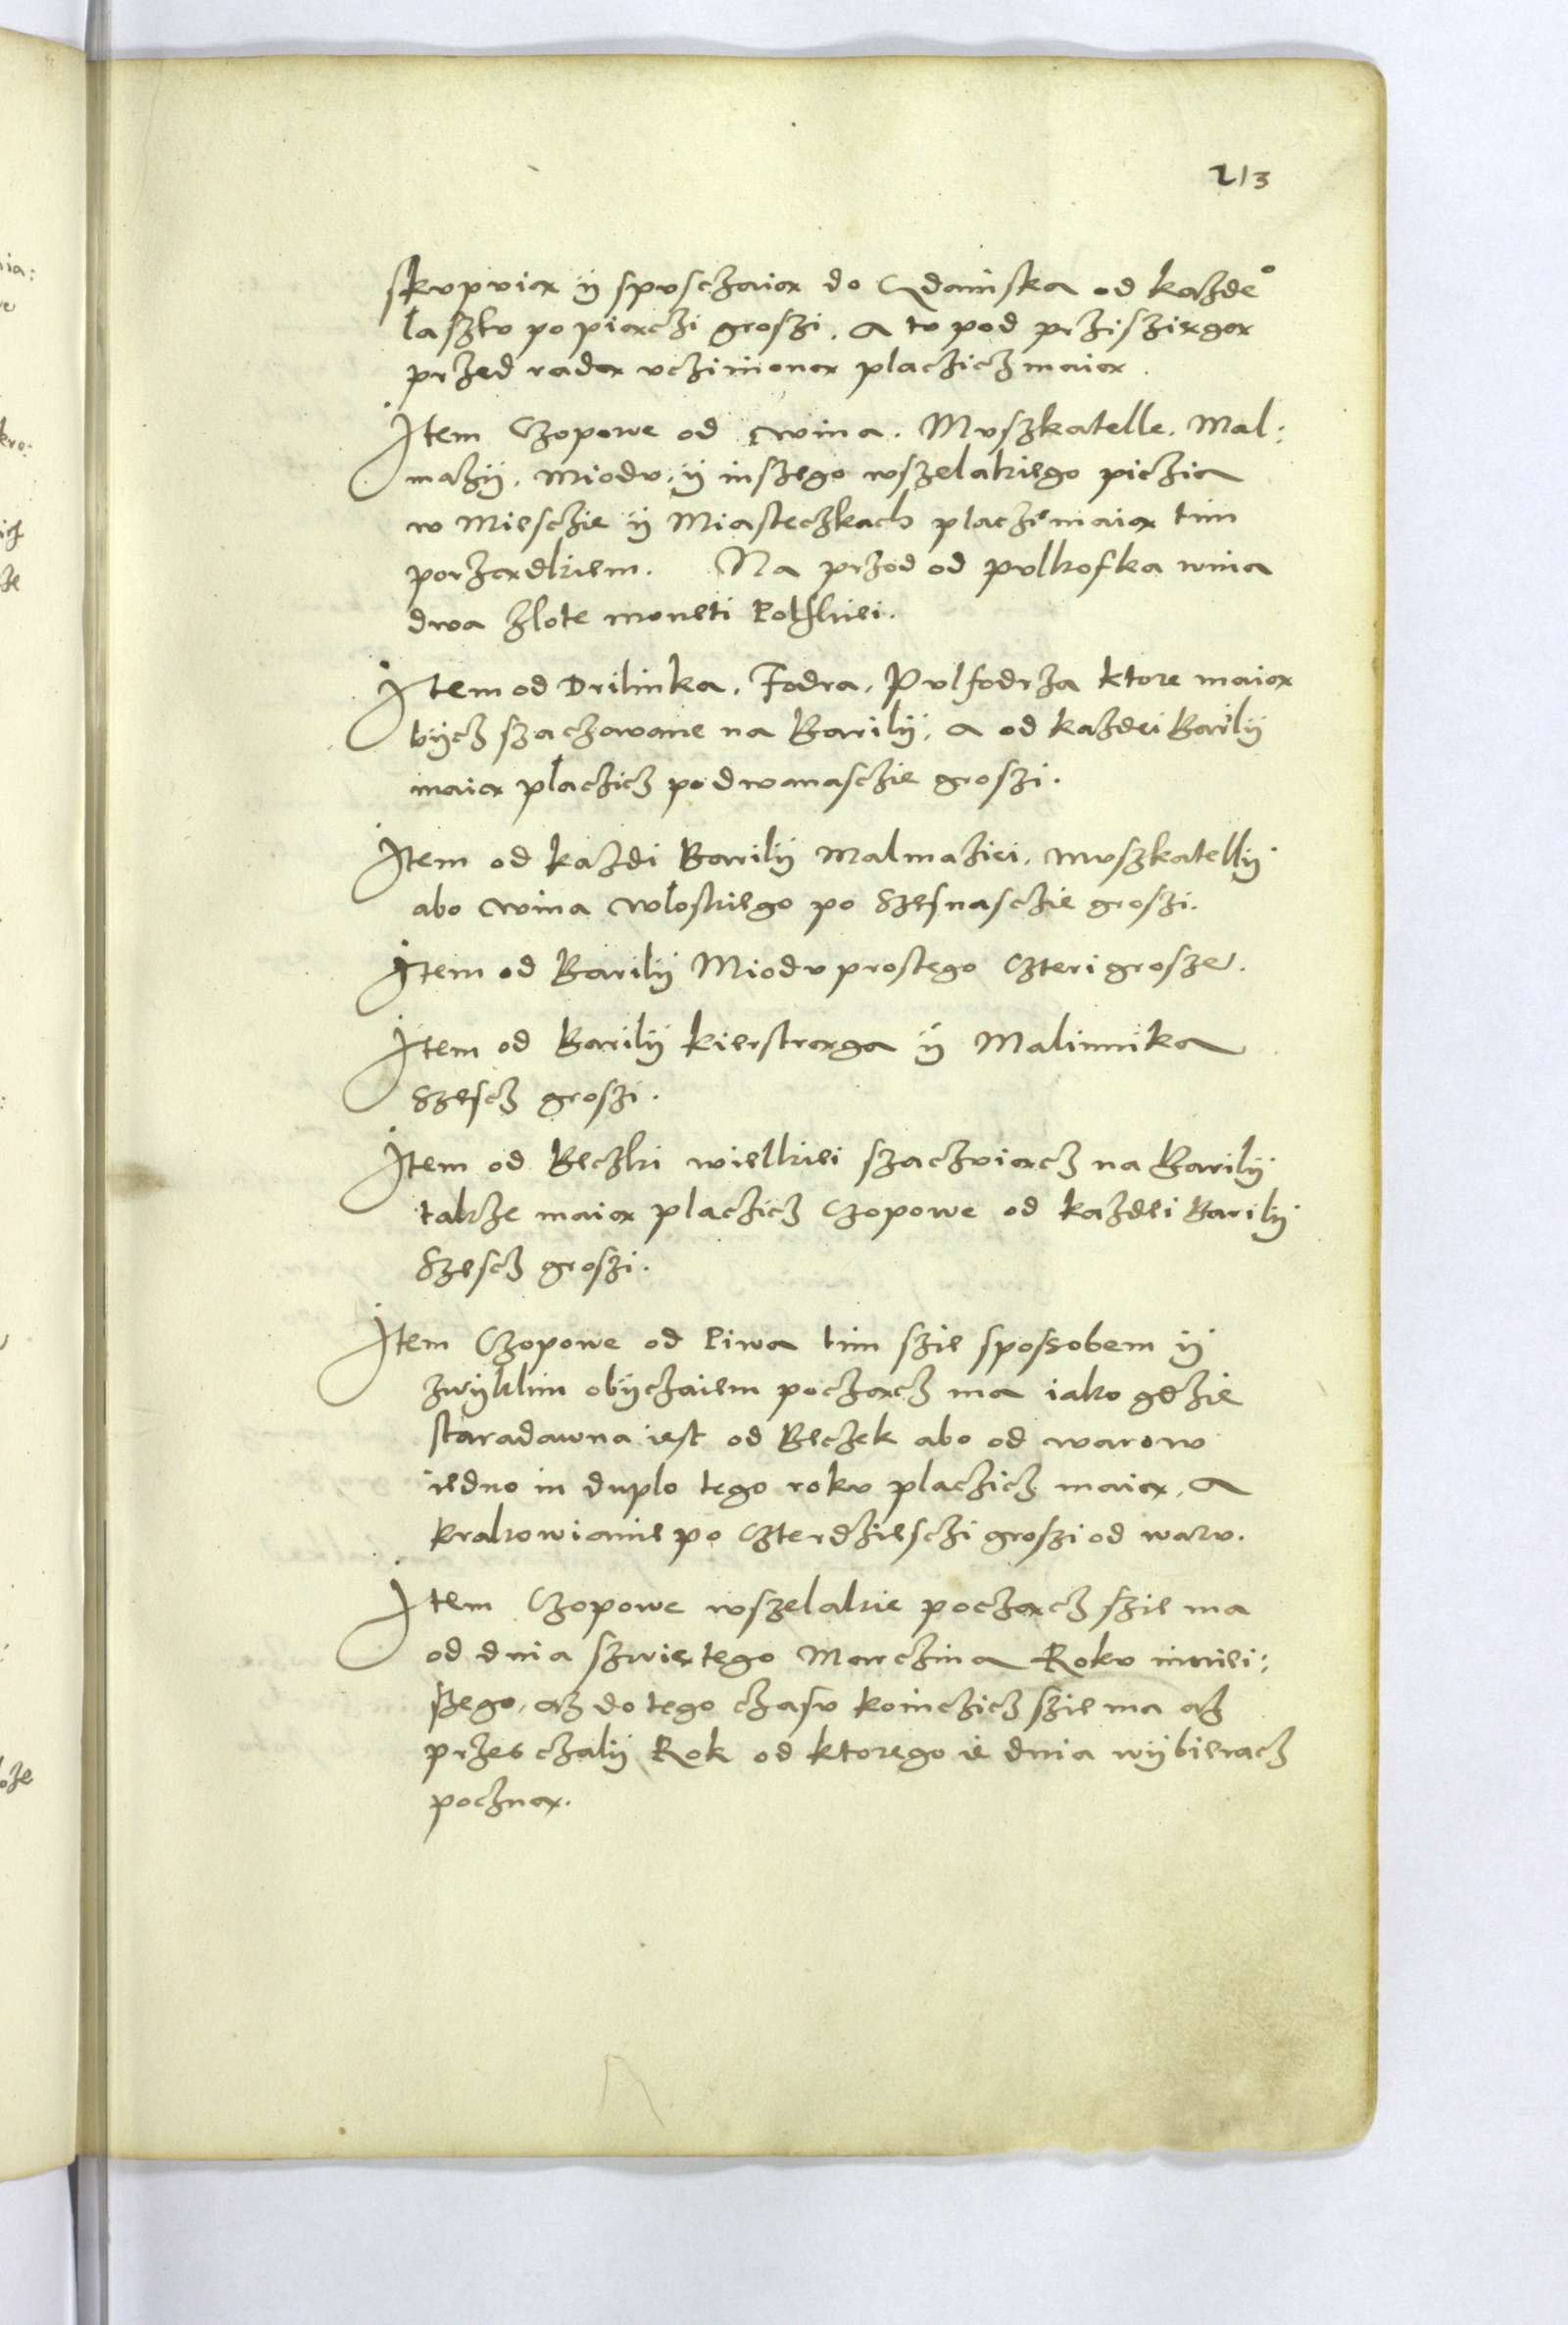 213
skupuią ÿ spusczaią do Gdańska od każde°
lasztu po piączi groszi. a to pod prziszięgą
przed radą uczinioną placzicz maią.
Item Czopowe od wina. Muszkatelle. Mal:
mazÿ. Miodu. ÿ inszego wszelakiego piczia
w Miesczie ÿ Miasteczkach placzi maią tim
porządkiem. Na przod od pulkofka wina
dwa złote moneti Polskiei.
Item od Drilinka. Fodra. Pulfodrza ktore maią
bÿcz szaczowane na Barilÿ. a od każdei Barilÿ
maią placzicz po dwanasczie groszi.
Item od każdi Barilÿ Malmaziei. muszkatellÿ
abo wina włoskiego po Szesnasczie groszi.
Item od Barilÿ Miodu prostego Czteri grosze.
Item od Barilÿ kierstrąga ÿ Malinnika
Szescz groszi.
Item od Beczki wielkiei szaczuiącz na Barilÿ
takze maią placzicz Czopowe od każdei Barilÿ
Szescz groszi.
Item Czopowe od Piwa tim szie spossobem ÿ
zwÿklim obÿczaiem począcz ma iako gdzie
staradawna iest od Beczek abo od warow
iedno in duplo tego roku placzicz maią. a
krakowianie po Czterdziesczi groszi od waru.
Item Czopowe wszelakie począcz szie ma
od dnia szwiętego Marczina Roku iniei:
szego. asz do tego czasu koinczicz szie ma asz
przes czalÿ Rok od ktorego ie dnia wÿbieracz
poczną.